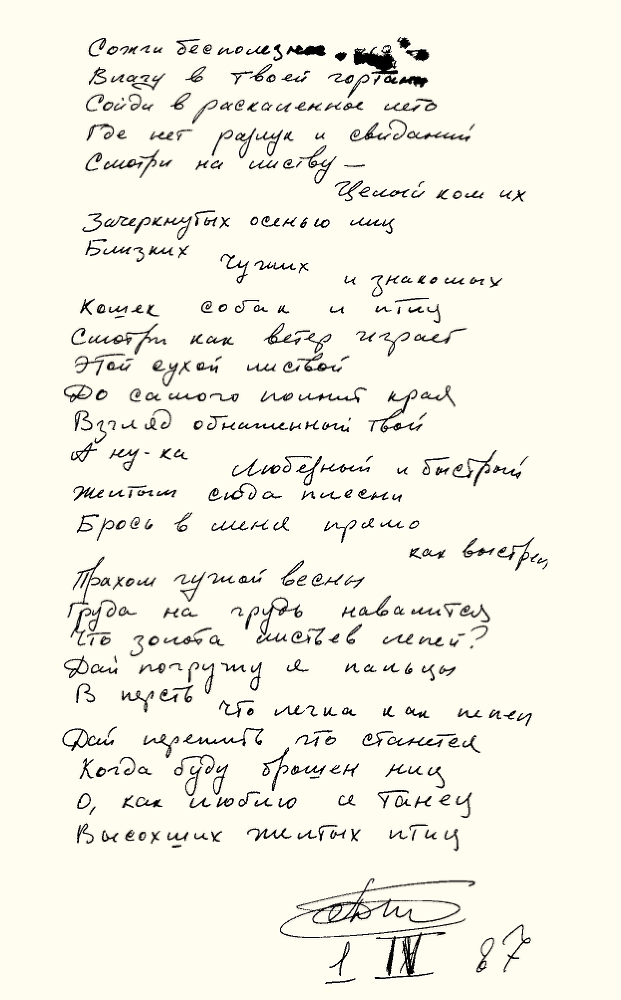 Сожги бесполезное
Влагу в твоей гортани
Сойди в раскаленное лето
Где нет разлук и свиданий
Смотри на листву —
Целый ком их
Зачеркнутых осенью лиц
Близких чужих и знакомых
Кошек собак и птиц
Смотри как ветер играет
Этой сухой листвой
До самого полнит края
Взгляд обнаженный твой
А ну-ка Любезный и быстрый
Желтым сюда плесни
Брось в меня прямо
как выстрел
Прахом чужой весны
Груда на грудь навалится
Что золота листьев лепей?
Дай погружу я пальцы
В персть что легка как пепел
Дай пережить что станется
Когда буду брошен ниц
О, как люблю я танец
Высохших желтых птиц
1 IV 87